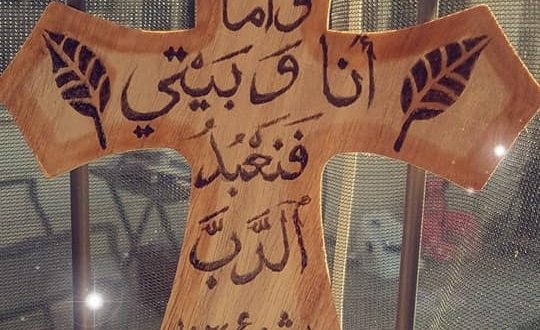 وأما
أنا وَبَيْتي
فَنَعْبُدُ
ٱلرَّبَّ